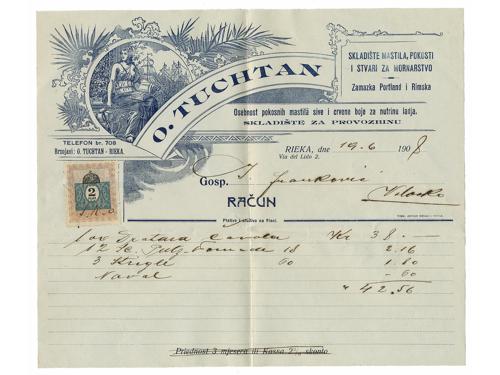 O. TUCHTAN
SKLADIŠTE MASTILA, POKOSTI
I STVARI ZA MORNARSTVO
Zamazka Portland i Rimska
Osebnost pokosnih mastilâ sive i crvene boje za nutrinu ladja.
SKLADIŠTE ZA PROVOZBINU
TELEFON br. 708
Brzojavi: O. TUCHTAN - RIEKA.
RIEKA, dne 19.6 1908
Via del Lido 2.
2
Gosp. I. Franković
Volosko
RAČUN
Plativo i utuživo na Rieci.
1 Kr 38.—
12 18 2.16
3 60 1.80
Naval -60
" 42.56
Priednost 3 mjeseca ili Kassa 2% skonto